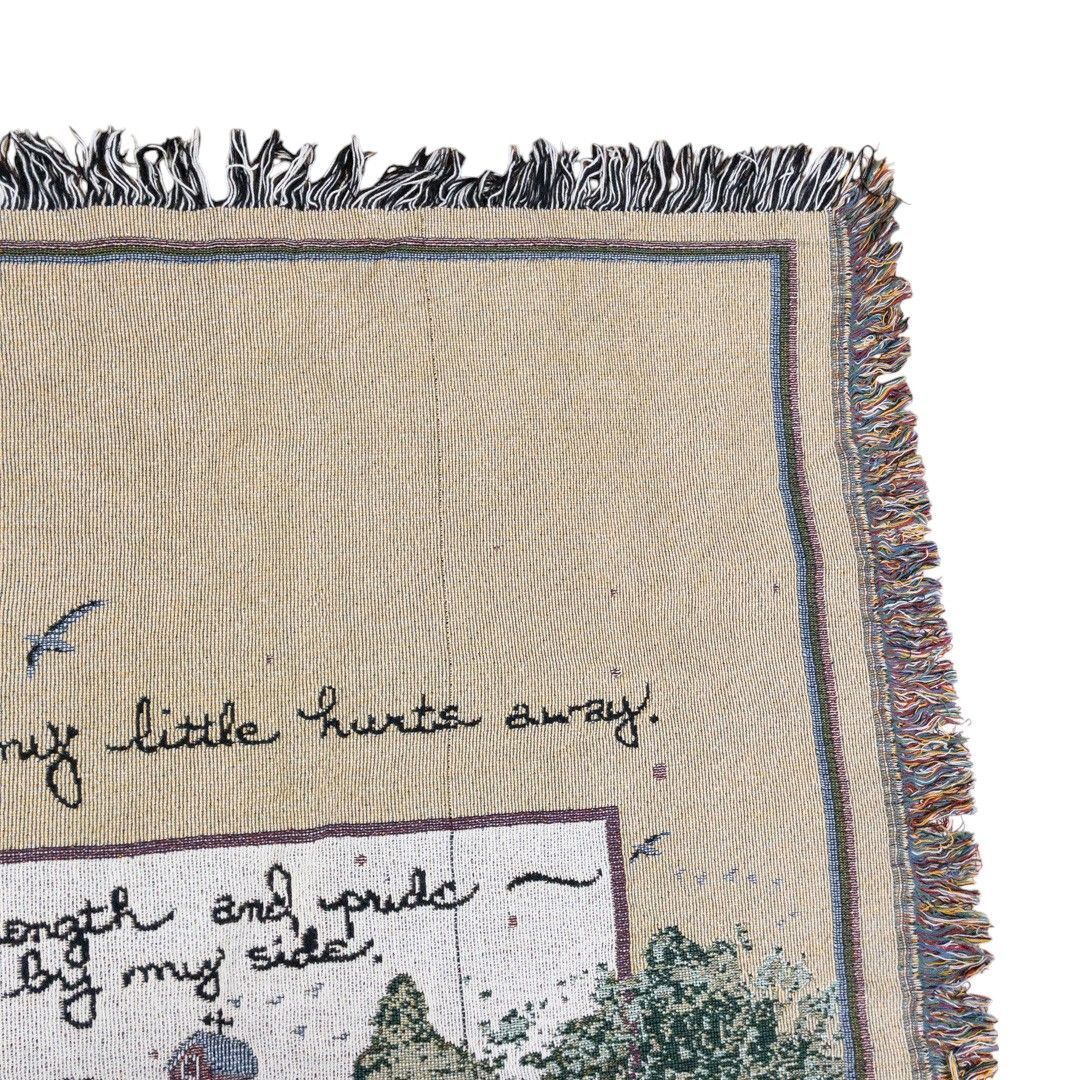 my little hurts away.
ength and pride ~
by my side.